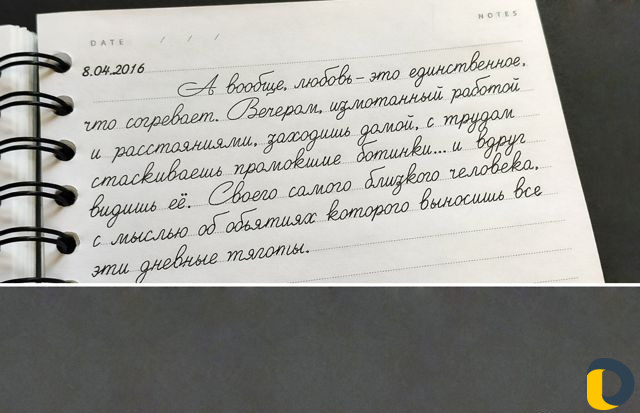 NOTES
DATE / / /
8.04.2016
А вообще, любовь - это единственное,
что согревает. Вечерам, измотанный работой
и расстояниями, заходишь домой, с трудам
стаскиваешь прамокшие ботинки... и вдруг
видишь её. Своего самого близкого человека,
с мыслью об объятиях которого выносишь все
эти дневные тяготы.